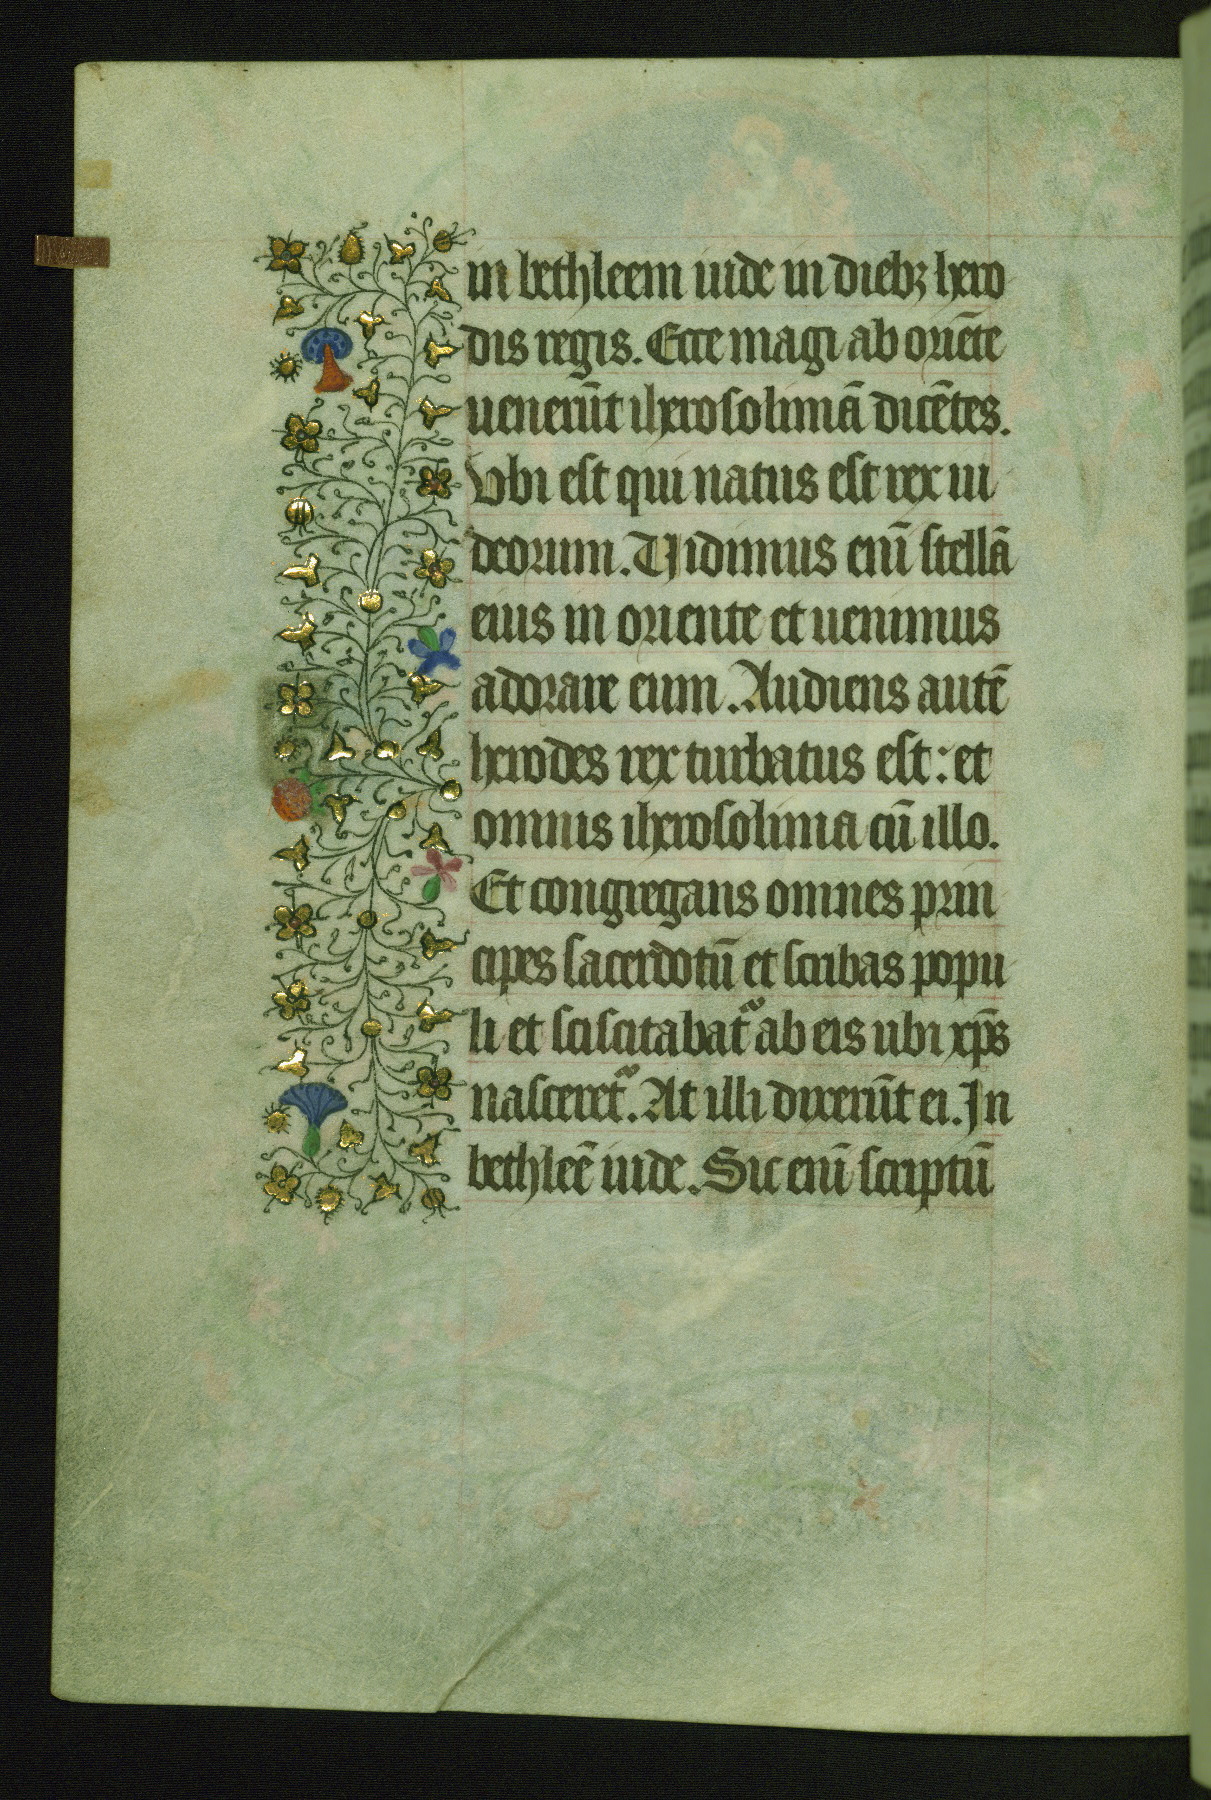 in bethleem iude in dieb; hero
dis regis. Ecce magi ab oriēte
uenerūt iherosolimā dicētes.
Vbi est qui natus est rex iu
deorum. Vidimus eni̅ stellā
eius in oriente et uenimus
adorare eum. Audiens autē
herodes rex turbatus est: et
omnis iherosolima cū illo.
Et congregans omnes prin
cipes sacerdotū et scribas popu
li et sciscitabat᷑ ab eis ubi xp̅s
nasceret᷑. At illi dixerūt ei. In
bethleē iude. Sic eni̅ scriptū